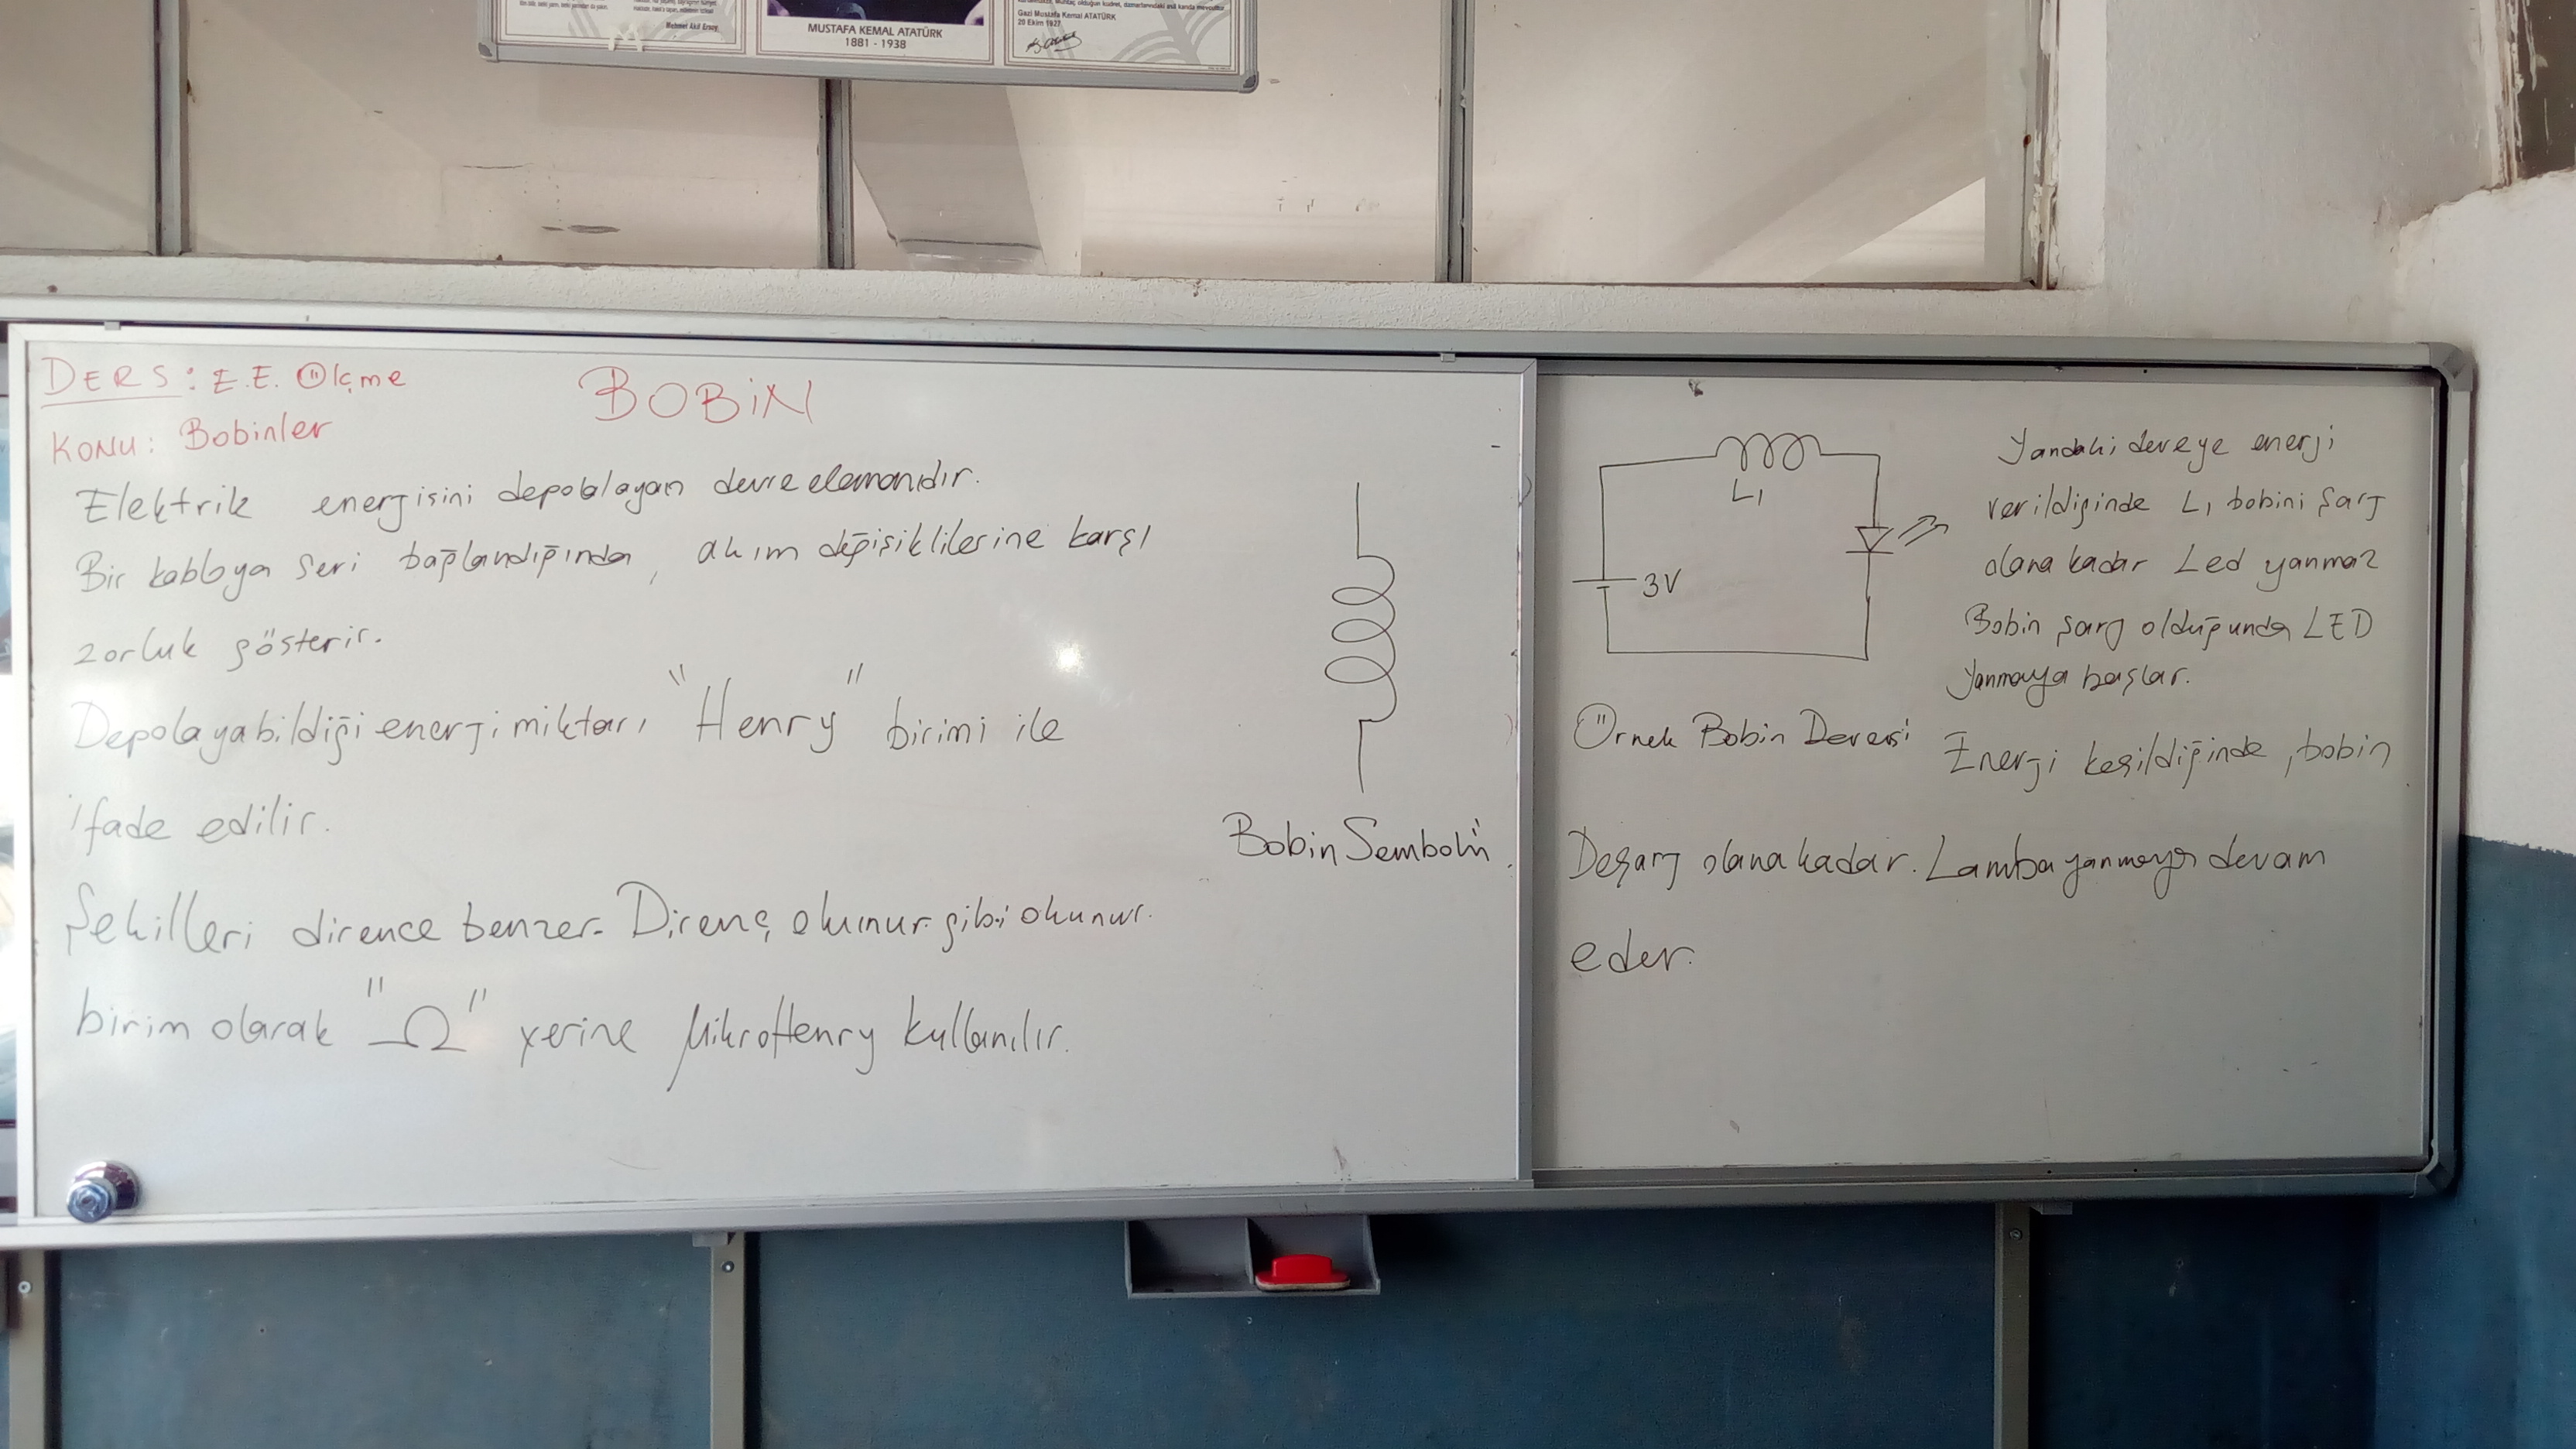 Mehmet Akif Ersoy
MUSTAFA KEMAL ATATÜRK
1881 - 1938
Gazi Mustafa Kemal ATATÜRK
20 Ekim 1927
DERS: E.E. Ölçme
KONU: Bobinler
BOBİN
Elektrik energisini depolalayan devre elemanıdır.
Bir kabloya seri bağlandığında, akım değişiklilerine karşı
zorluk gösterir.
Depolayabildiği enerji miktarı "Henry" birimi ile
ifade edilir.
Şekilleri dirence benzer. Direnç okunur gibi okunur.
birim olarak "Ω" yerine MikroHenry kullanılır.
Bobin Sembolü
L1
3V
Örnek Bobin Devresi
Yandaki devreye enerji
verildiğinde L1 bobini şarj
olana kadar Led yanmaz
Bobin şarj olduğunda LED
Yanmaya başlar.
Enerji kesildiğinde, bobin
Deşarj olana kadar. Lamba yanmaya devam
eder.